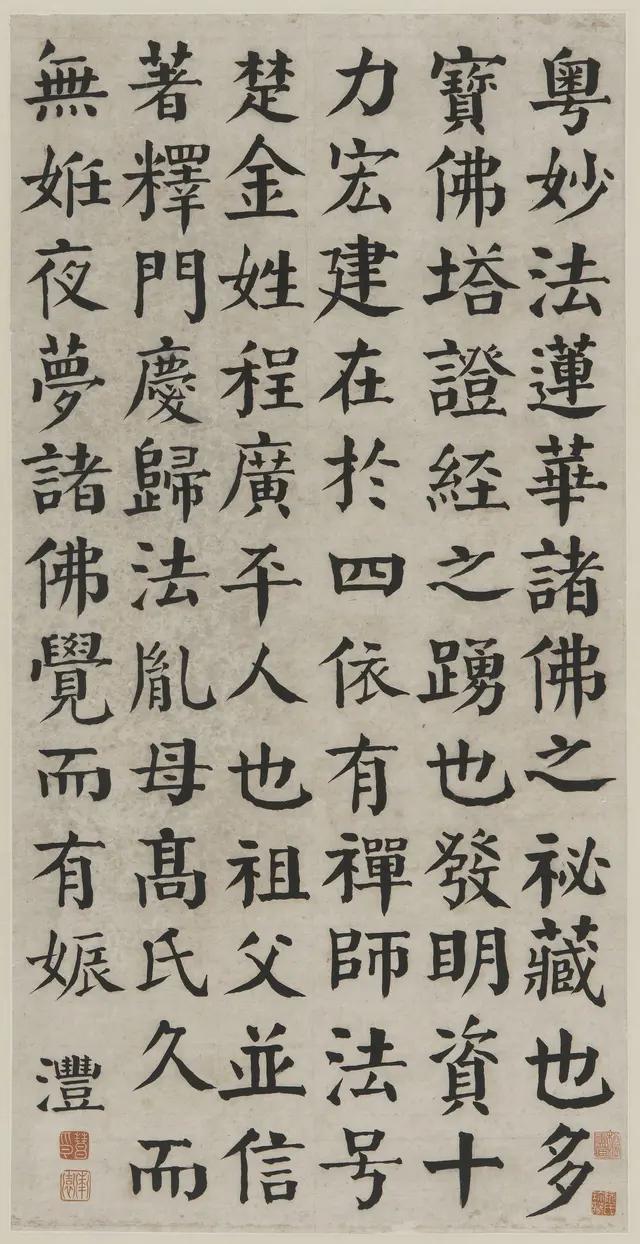 粤妙法蓮華諸佛之祕藏也多
寶佛塔證経之踴也發明資十
力宏建在於四依有禪師法号
楚金姓程廣平人也祖父並信
著釋門慶歸法胤母髙氏久而
無姙夜夢諸佛覺而有娠
灃